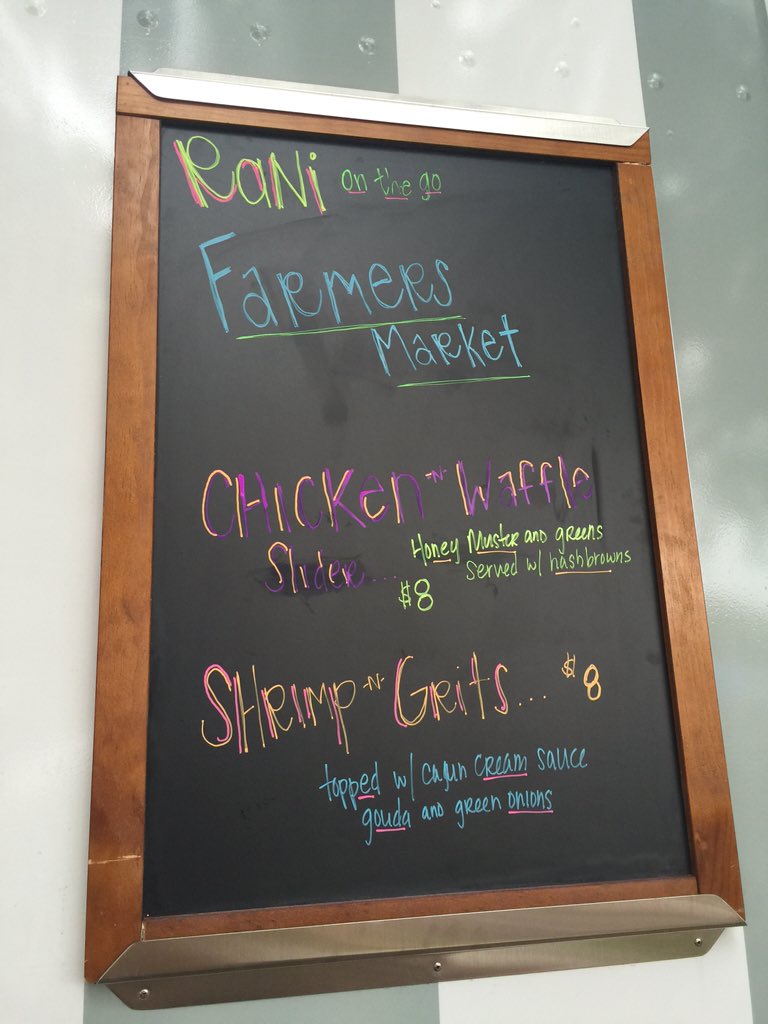 RaNi on the go
Farmers
Market
CHicken -N- Waffle
Slider... Honey Muster and greens
served w/ hashbrowns
$8
SHrimp -N- Grits... $8
topped w/ cajun cream sauce
gouda and green onions